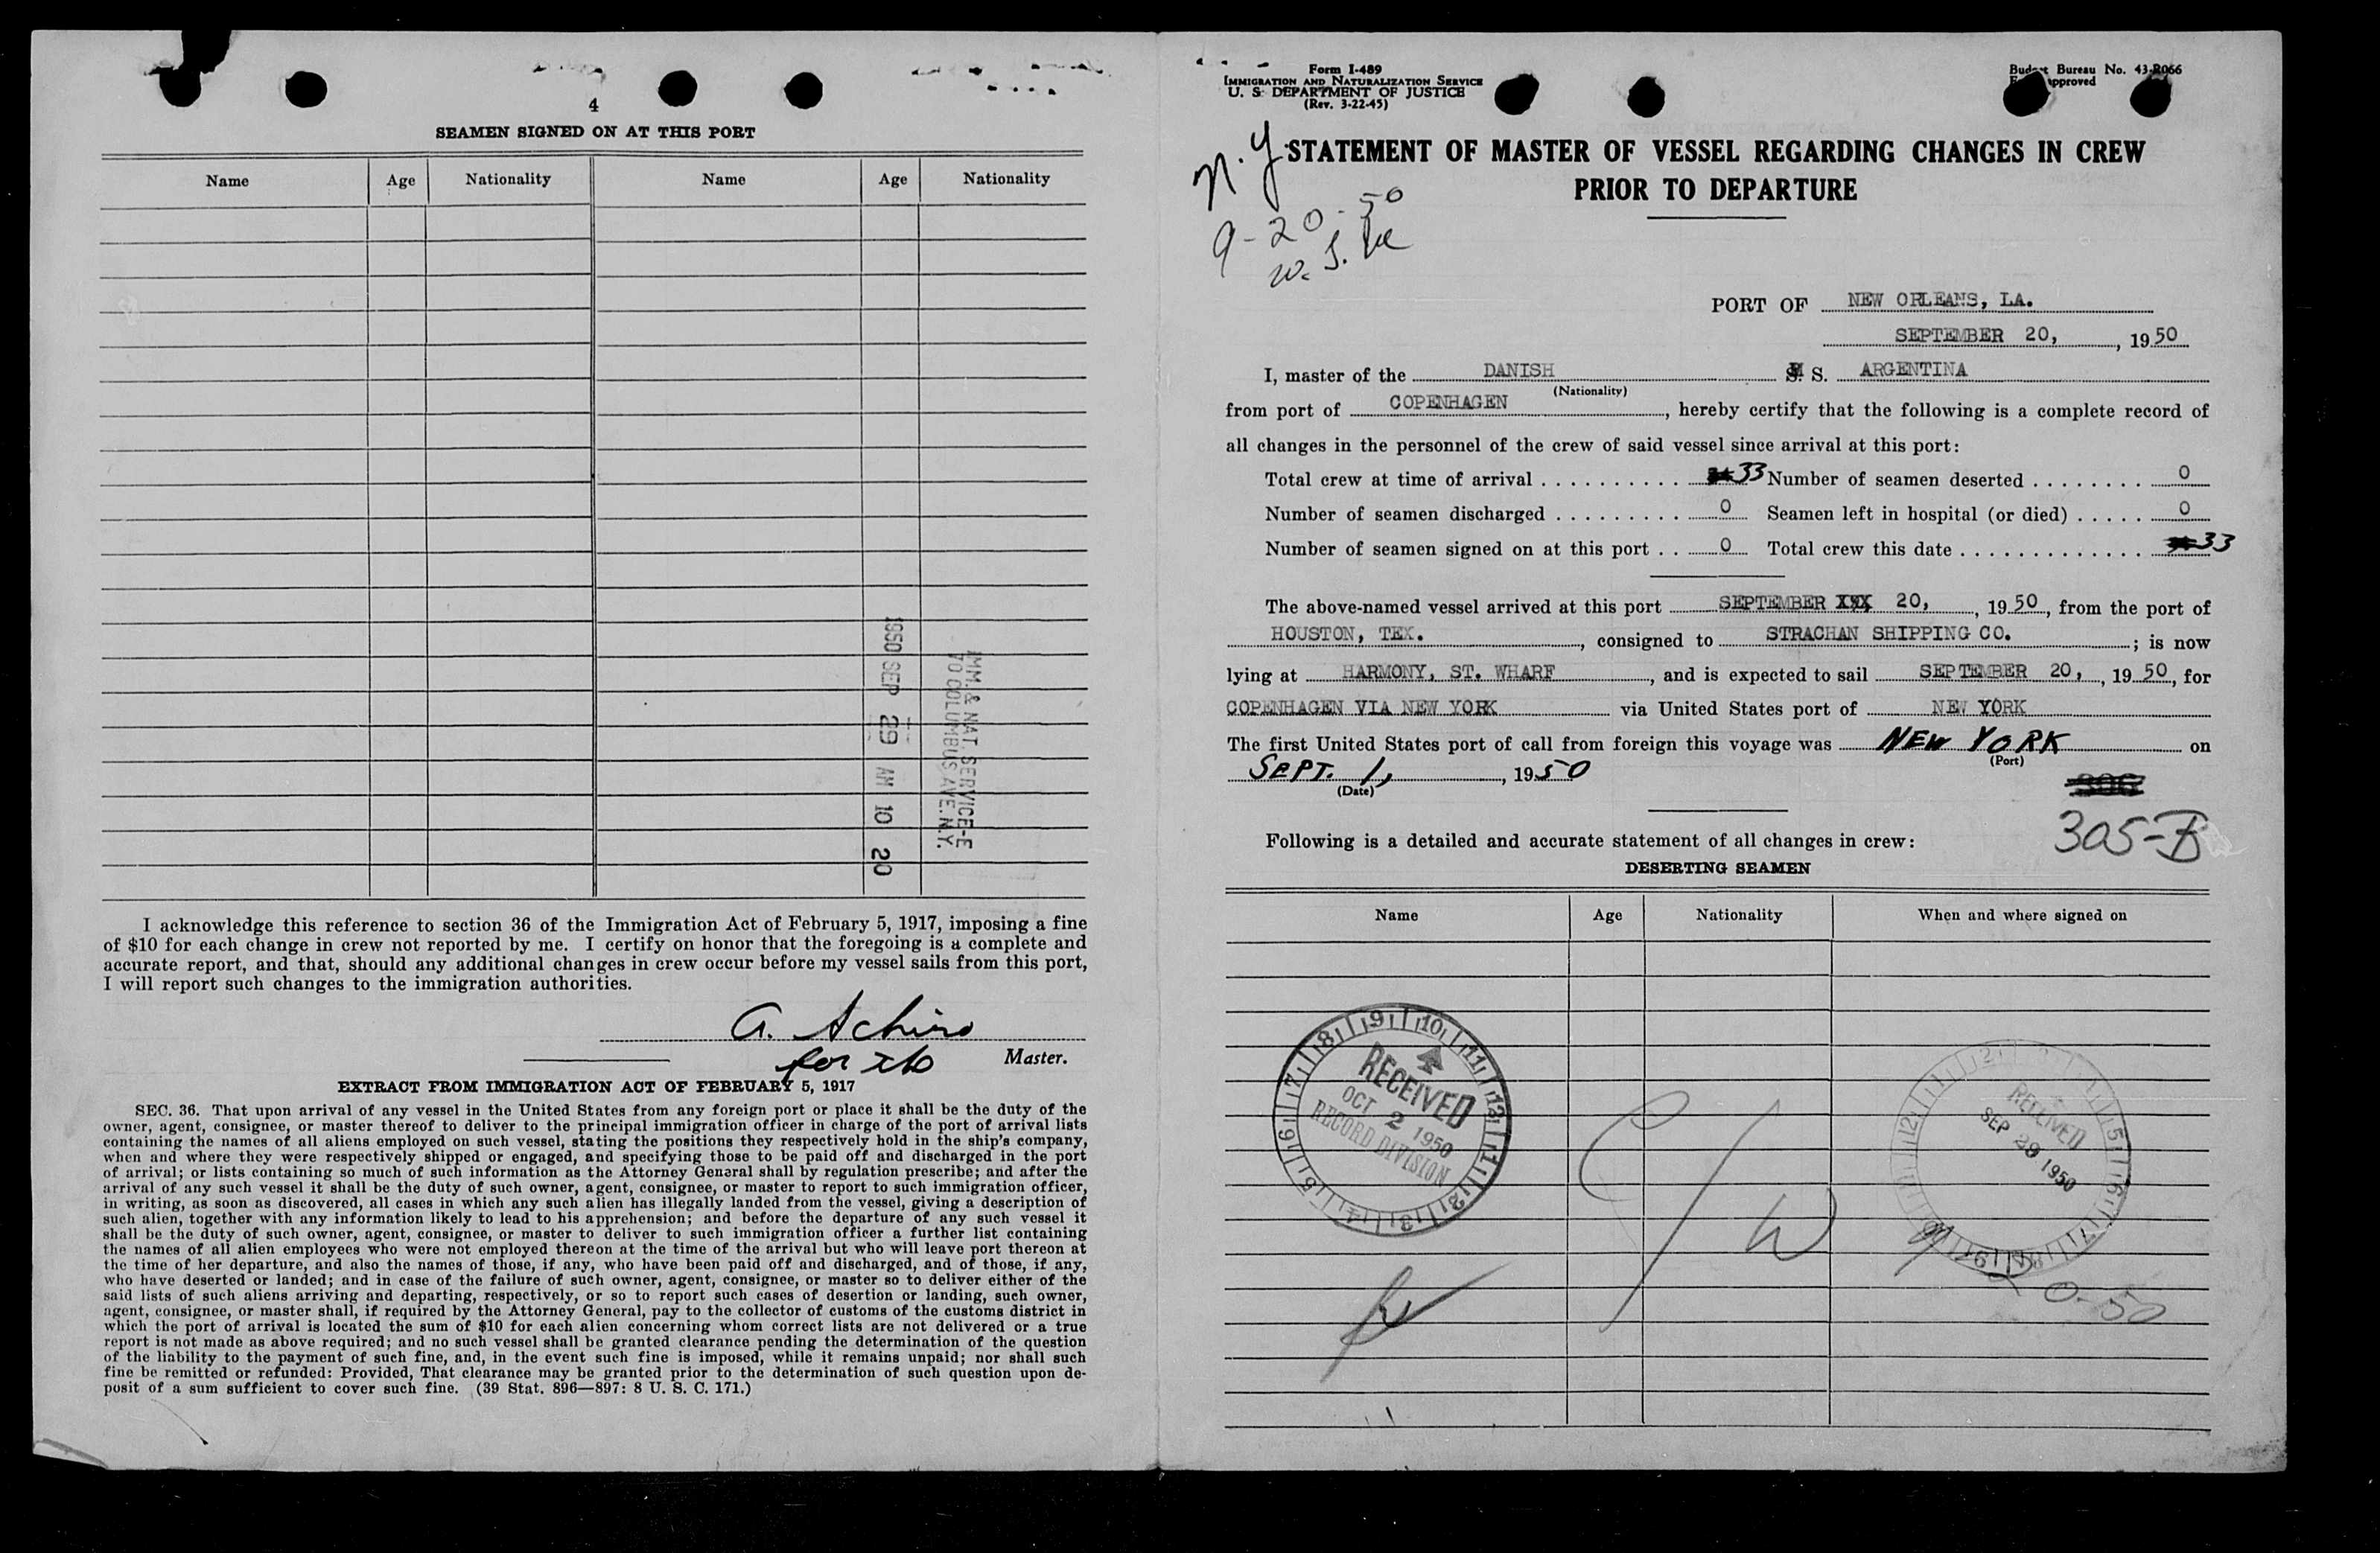 4
SEAMEN SIGNED ON AT THIS PORT
Name Age Nationality Name Age Nationality
1950 SEP 29 AM 10 20
IMM. & NAT. SERVICE-E
70 COLUMBUS AVE. N.Y.
I acknowledge this reference to section 36 of the Immigration Act of February 5, 1917, imposing a fine
of $10 for each change in crew not reported by me. I certify on honor that the foregoing is a complete and
accurate report, and that, should any additional changes in crew occur before my vessel sails from this port,
I will report such changes to the immigration authorities.
Master.
EXTRACT FROM IMMIGRATION ACT OF FEBRUARY 5, 1917
SEC. 36. That upon arrival of any vessel in the United States from any foreign port or place it shall be the duty of the
owner, agent, consignee, or master thereof to deliver to the principal immigration officer in charge of the port of arrival lists
containing the names of all aliens employed on such vessel, stating the positions they respectively hold in the ship's company,
when and where they were respectively shipped or engaged, and specifying those to be paid off and discharged in the port
of arrival; or lists containing so much of such information as the Attorney General shall by regulation prescribe; and after the
arrival of any such vessel it shall be the duty of such owner, agent, consignee, or master to report to such immigration officer,
in writing, as soon as discovered, all cases in which any such alien has illegally landed from the vessel, giving a description of
such alien, together with any information likely to lead to his apprehension; and before the departure of any such vessel it
shall be the duty of such owner, agent, consignee, or master to deliver to such immigration officer a further list containing
the names of all alien employees who were not employed thereon at the time of the arrival but who will leave port thereon at
the time of her departure, and also the names of those, if any, who have been paid off and discharged, and of those, if any,
who have deserted or landed; and in case of the failure of such owner, agent, consignee, or master so to deliver either of the
said lists of such aliens arriving and departing, respectively, or so to report such cases of desertion or landing, such owner,
agent, consignee, or master shall, if required by the Attorney General, pay to the collector of customs of the customs district in
which the port of arrival is located the sum of $10 for each alien concerning whom correct lists are not delivered or a true
report is not made as above required; and no such vessel shall be granted clearance pending the determination of the question
of the liability to the payment of such fine, and, in the event such fine is imposed, while it remains unpaid; nor shall such
fine be remitted or refunded: Provided, That clearance may be granted prior to the determination of such question upon de-
posit of a sum sufficient to cover such fine. (39 Stat. 896—897: 8 U. S. C. 171.)
Form I-489
IMMIGRATION AND NATURALIZATION SERVICE
U. S. DEPARTMENT OF JUSTICE
(Rev. 3-22-45)
Budget Bureau No. 43-R066
approved
N.Y
9-20-50
STATEMENT OF MASTER OF VESSEL REGARDING CHANGES IN CREW
PRIOR TO DEPARTURE
PORT OF NEW ORLEANS, LA.
SEPTEMBER 20, , 19 50
I, master of the DANISH M S. ARGENTINA
(Nationality)
from port of COPENHAGEN , hereby certify that the following is a complete record of
all changes in the personnel of the crew of said vessel since arrival at this port:
Total crew at time of arrival . . . . . . . . . . 33 Number of seamen deserted . . . . . . . . 0
Number of seamen discharged . . . . . . . . . 0 Seamen left in hospital (or died) . . . . . 0
Number of seamen signed on at this port . . 0 Total crew this date . . . . . . . . . . . . . . 33
The above-named vessel arrived at this port SEPTEMBER XXX 20, , 19 50, from the port of
HOUSTON, TEX. , consigned to STRACHAN SHIPPING CO. ; is now
lying at HARMONY, ST. WHARF , and is expected to sail SEPTEMBER 20, , 19 50, for
COPENHAGEN VIA NEW YORK via United States port of NEW YORK
The first United States port of call from foreign this voyage was NEW YORK on
(Port)
SEPT. 1, , 1950
(Date)
306
305-B
Following is a detailed and accurate statement of all changes in crew:
DESERTING SEAMEN
Name Age Nationality When and where signed on
RECEIVED
OCT 2 1950
RECORD DIVISION
RECEIVED
SEP 29 1950